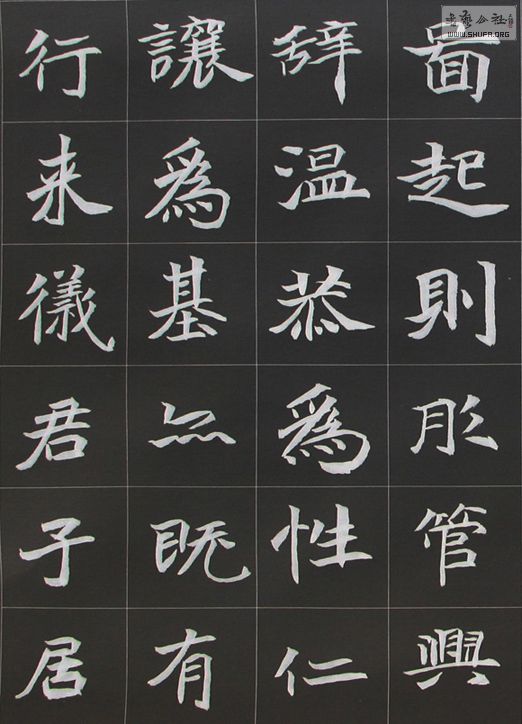 啚起則彤管興
辞温恭爲性仁
讓爲基無既有
行来儀君子居
書藝公社
WWW.SHUFA.ORG